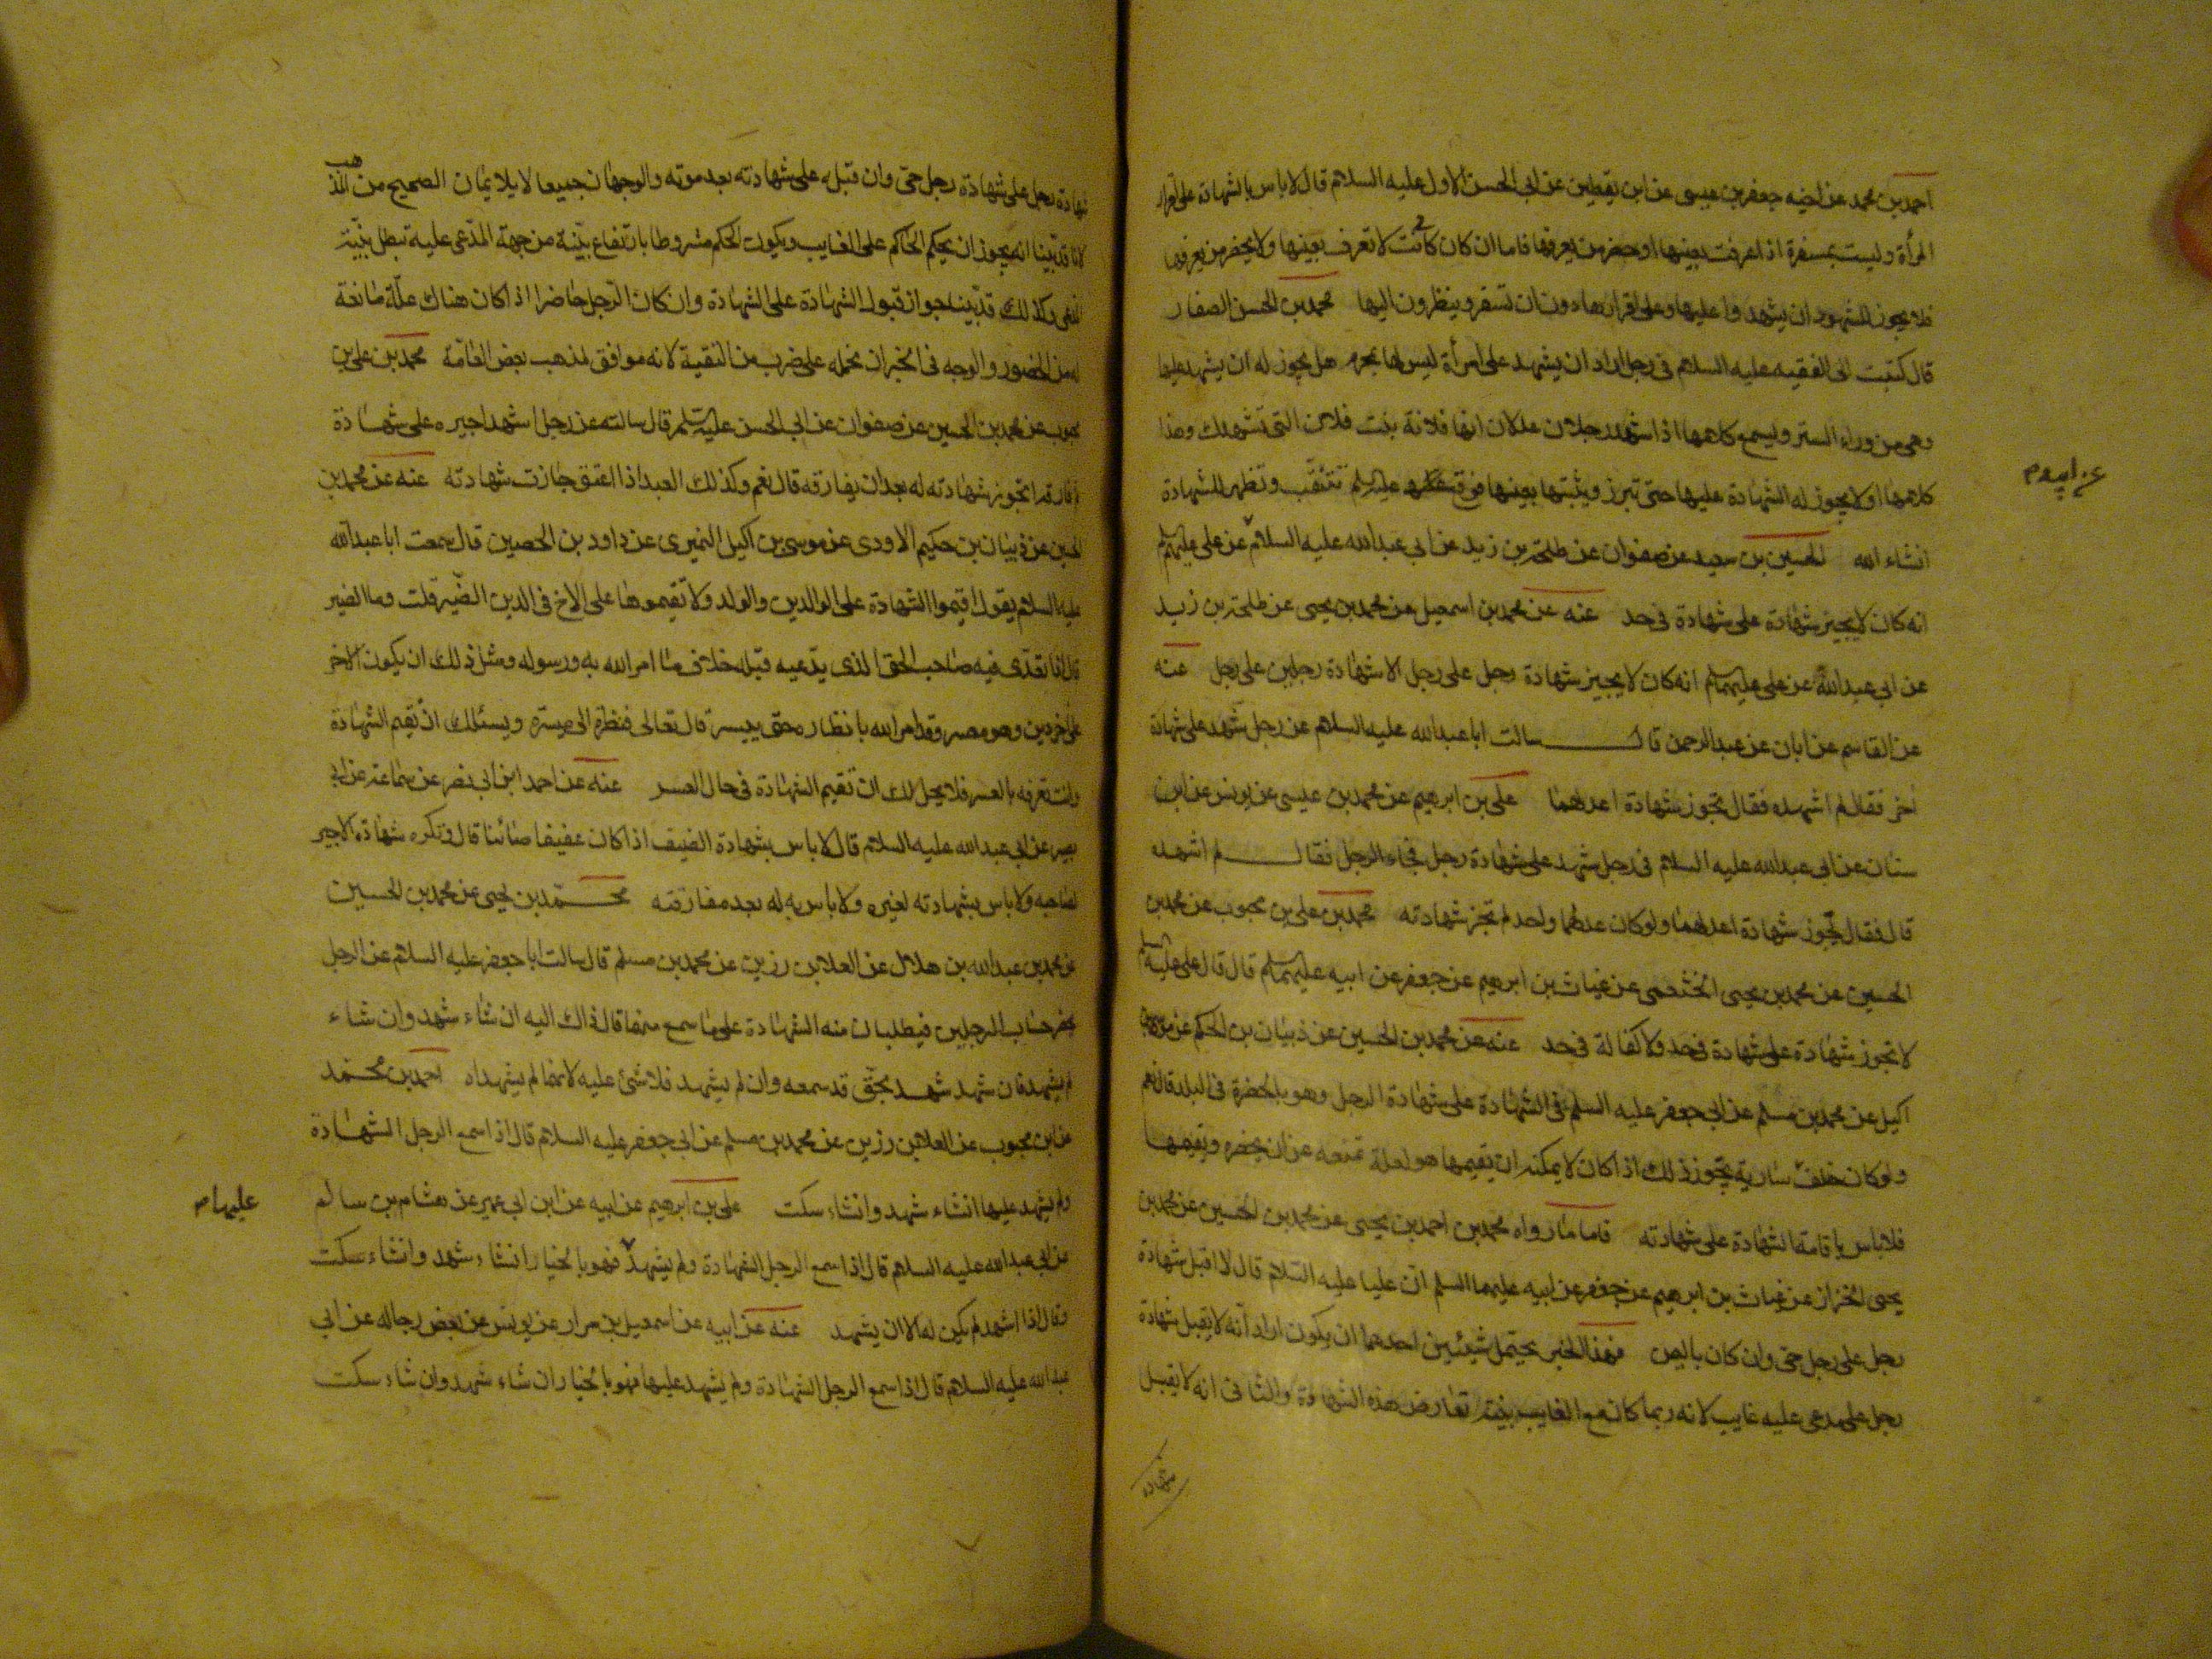 احمد بن محمد عن اخيه جعفر بن عيسى عن ابن يقطين عن ابى الحسن الاول عليه السلام قال لا باس بالشهادة على اقرار
المرأة وليست بمسفرة اذا عرفت بعينها او حضر من يعرفها فاما ان كان كانت لا تعرف بعينها ولا يحضر من يعرفها
فلا يجوز للشهود ان يشهدوا عليها وعلى اقرارها دون ان تسفر وينظرون اليها محمد بن الحسن الصفار
قال كتبت الى الفقيه عليه السلام فى رجل اراد ان يشهد على امرأة ليس لها بمحرم هل يجوز له ان يشهد عليها
وهى من وراء الستر ويسمع كلامها اذا شهد رجلان عدلان انها فلانة بنت فلان التى تشهدك وهذا
كلامها او لا يجوز له الشهادة عليها حتى تبرز ويثبتها بعينها فوقع عليه السلم تتنقب وتظهر للشهادة
عن ابيه م
انشاء الله الحسين بن سعيد عن صفوان عن طلحة بن زيد عن ابى عبد الله عليه السلام عن على عليهم السلم
انه كان لا يجيز شهادة على شهادة فى حد عنه عن محمد بن اسمعيل عن محمد بن يحيى عن طلحة بن زيد
عن ابى عبد الله عن على عليهما السلم انه كان لا يجيز شهادة رجل على رجل الا شهادة رجلين على رجل عنه
عن القاسم عن ابان عن عبد الرحمن قال سالت ابا عبد الله عليه السلام عن رجل شهد على شهادة
اخر فقال لم اشهده فقال تجوز شهادة اعدلهما على بن ابرهيم عن محمد بن عيسى عن يونس عن ابن
سنان عن ابى عبد الله عليه السلام فى رجل شهد على شهادة رجل فجاء الرجل فقال لم اشهده
قال فقال تجوز شهادة اعدلهما ولو كان عدلهما واحد لم تجز شهادته محمد بن على بن محبوب عن محمد بن
الحسين عن محمد بن يحيى الخثعمى عن غياث بن ابرهيم عن جعفر عن ابيه عليهما السلم قال قال على عليه السلم
لا تجوز شهادة على شهادة فى حد ولا كفالة فى حد عنه عن محمد بن الحسين عن ذبيان بن الحكم عن موسى بن
اكيل عن محمد بن مسلم عن ابى جعفر عليه السلم فى الشهادة على شهادة الرجل وهو بالحضرة فى البلد قال نعم
ولو كان خلف سارية يجوز ذلك اذا كان لا يمكنه ان يقيمها هو لعلة تمنعه عن ان يحضره ويقيمها
فلا باس باقامة الشهادة على شهادته فاما ما رواه محمد بن احمد بن يحيى عن محمد بن الحسين عن محمد بن
يحيى الخزاز عن غياث بن ابرهيم عن جعفر عن ابيه عليهما السلم ان عليا عليه السلام قال لا اقبل شهادة
رجل على رجل حى وان كان باليمن فهذا الخبر يحتمل شيئين احدهما ان يكون اراد انه لا يقبل شهادة
رجل على مدعى عليه غايب لانه ربما كان مع الغايب بينة تعارض هذه الشهادة والثانى انه لا يقبل
شهادة
شهادة رجل على شهادة رجل حى وان قبل على شهادته بعد موته والوجهان جميعا لا يلايمان الصحيح من المذهب
لانا قد بينا انه يجوز ان يحكم الحاكم على الغايب ويكون الحكم مشروطا بارتفاع بينة من جهة المدعى عليه تبطل بينة
المدعى وكذلك قد بينا جواز قبول الشهادة على الشهادة وان كان الرجل حاضرا اذا كان هناك علة مانعة
له من الحضور والوجه فى الخبر ان نحمله على ضرب من التقية لانه موافق لمذهب بعض العامة محمد بن على بن
محبوب عن محمد بن الحسين عن صفوان عن ابى الحسن عليه السلم قال سالته عن رجل اشهد اجيره على شهادة
ثم فارقه اتجوز شهادته له بعد ان يفارقه قال نعم وكذلك العبد اذا اعتق جازت شهادته عنه عن محمد بن
الحسين عن ذبيان بن حكيم الاودى عن موسى بن اكيل النميرى عن داود بن الحصين قال سمعت ابا عبد الله
عليه السلام يقول اقيموا الشهادة على الوالدين والولد ولا تقيموها على الاخ فى الدين الضير قلت وما الضير
قال اذا تعدى فيه صاحب الحق الذى يدعيه قبله خلاف ما امر الله به ورسوله ومثل ذلك ان يكون لاخر
على اخر دين وهو معسر وقد امر الله بانظاره حتى ييسر قال تعالى فنظرة الى ميسرة ويسئلك ان تقيم الشهادة
وانت تعرفه بالعسر فلا يحل لك ان تقيم الشهادة فى حال العسر عنه عن احمد ابن ابى نصر عن سماعة عن ابى
بصير عن ابى عبد الله عليه السلام قال لا باس بشهادة الضيف اذا كان عفيفا صائنا قال وتكره شهادة الاجير
لصاحبه ولا باس بشهادته لغيره ولا باس به له بعد مفارقته محمد بن يحيى عن محمد بن الحسين
عن محمد بن عبد الله بن هلال عن العلا بن رزين عن محمد بن مسلم قال سالت ابا جعفر عليه السلام عن الرجل
يحضر حساب الرجلين فيطلبان منه الشهادة على ما سمع منهما قال ذاك اليه ان شاء شهد وان شاء
لم يشهد فان شهد شهد بحق قد سمعه وان لم يشهد فلا شئ عليه لانهما لم يشهداه احمد بن محمد
عن ابن محبوب عن العلا بن رزين عن محمد بن مسلم عن ابى جعفر عليه السلام قال اذا سمع الرجل الشهادة
ولم يشهد عليها انشاء شهد وانشاء سكت على بن ابرهيم عن ابيه عن ابن ابى عمير عن هشام بن سالم
عليها م
عن ابى عبد الله عليه السلام قال اذا سمع الرجل الشهادة ولم يشهد فهو بالخيار انشاء شهد وانشاء سكت
وقال اذا اشهد لم يكن له الا ان يشهد عنه عن ابيه عن اسمعيل بن مرار عن يونس عن بعض رجاله عن ابى
عبد الله عليه السلام قال اذا سمع الرجل الشهادة ولم يشهد عليها فهو بالخيار ان شاء شهد وان شاء سكت